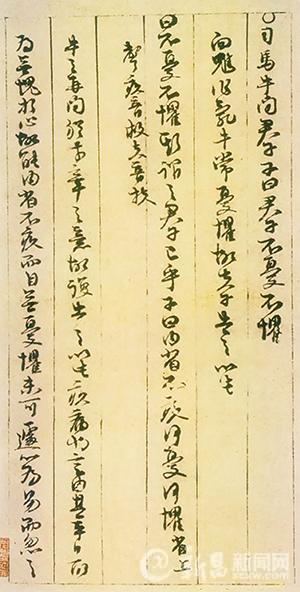 ○司馬牛問君子子曰君子不憂不懼
向魋作亂牛常憂懼故夫子告之以此
曰不憂不懼斯謂之君子已乎子曰內省不疚何憂何懼省上
聲疚音救夫音扶
牛之再問猶前章之意故復告之以此疚病也言由其平日所
為無愧於心故能內省不疚而自無憂懼未可遽以為易而忽之
新昌新闻网